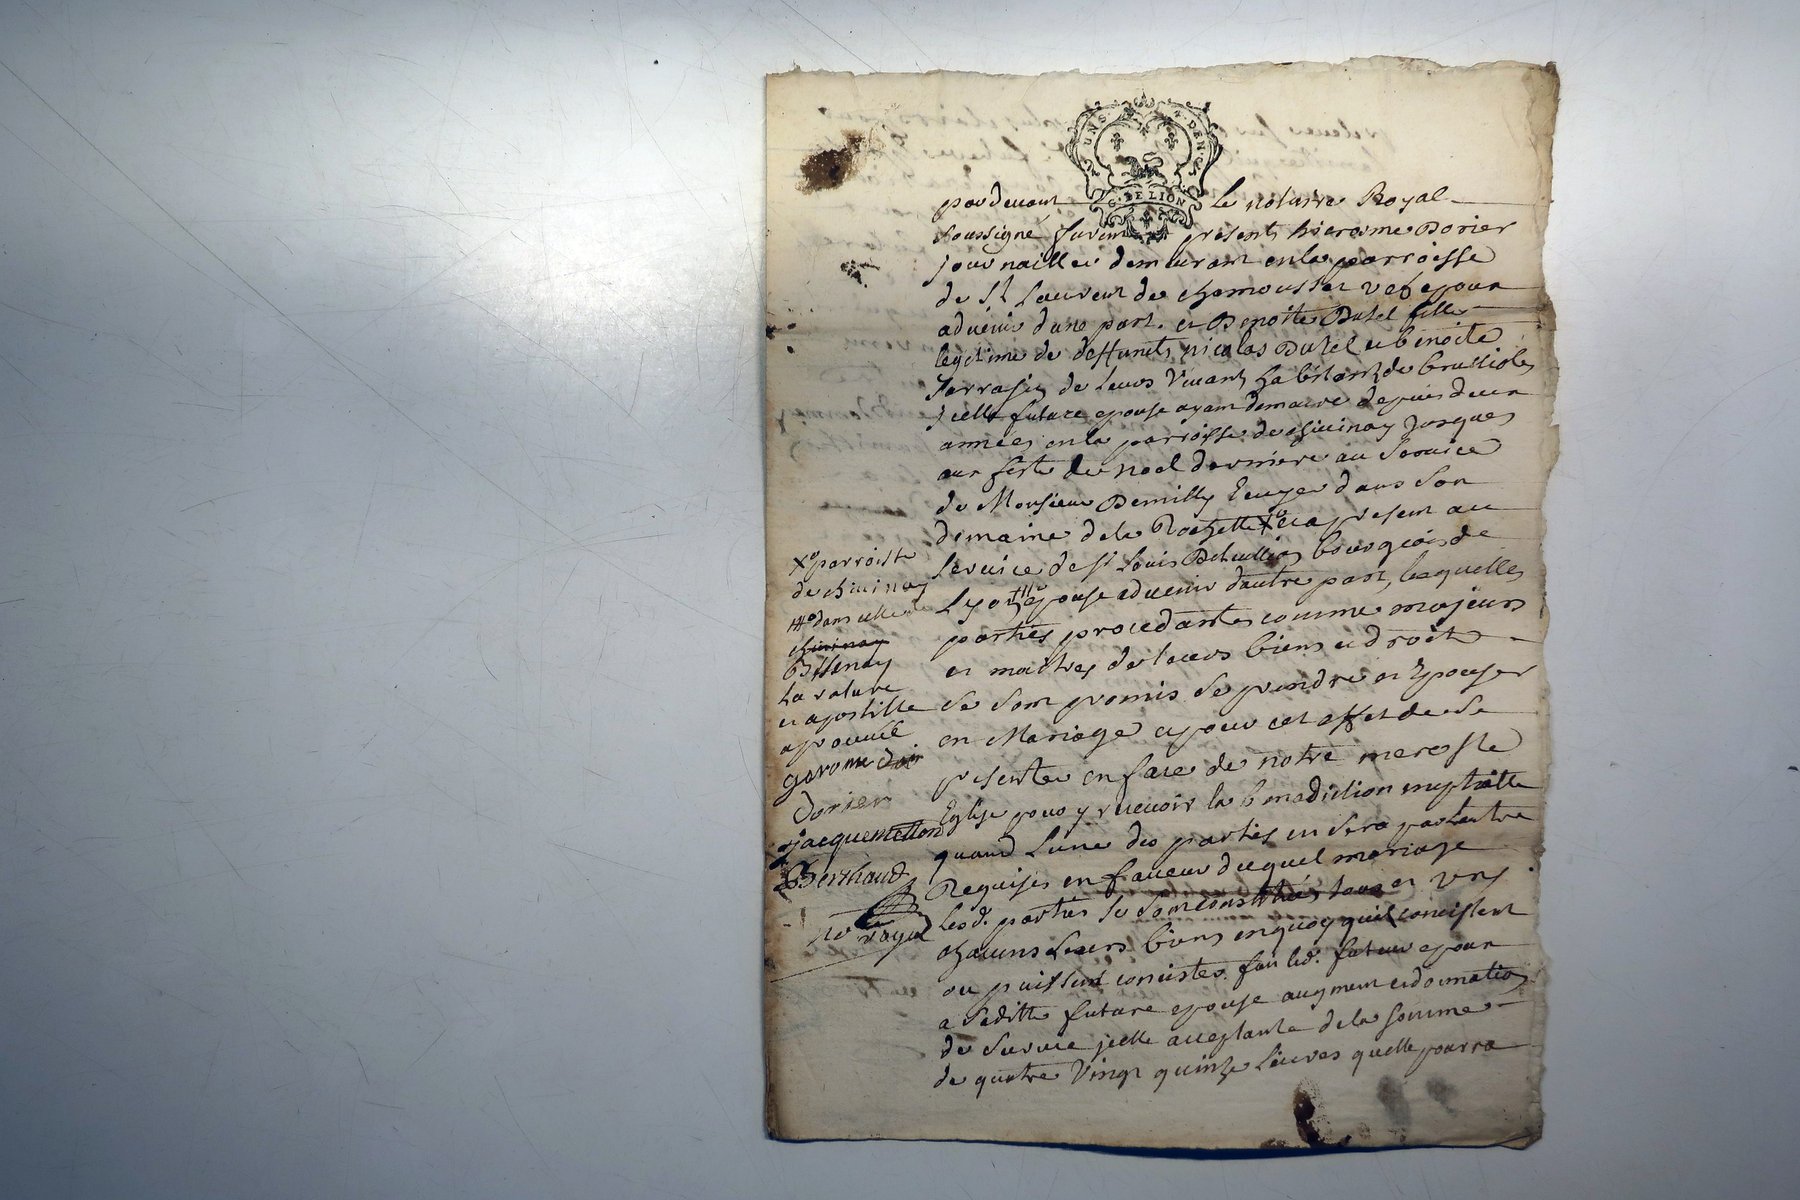 UNS 4 DEN. rs
G. DE LION
pardevant Le notaire Royal
soussigné furent presents hierosme Dorier
journaillier demeurant en la parroisse
de St Laurent de chamousset vef epoux
advenir dune part. et Benoite Dutel fille
legitime de deffuncts nicolas Dutel et benoite
Terrasse de leurs Vivants habitants de brussioles
jcelle future epouse ayant demeure depuis deux
années en la parroisse de chivinay Jusques
aux feste de noel derniere au service
de Monsieur Demilly Ecuyer dans son
domaine de la Rochette Xo et a present au
service de sr Louis bourgeois de
Lyon epouse advenir dautre part, lesquelles
parties procedantes comme majeurs
et maitres de leurs biens et droit
se sont promis se prendre et Epouser
en Mariage et pour cet effet de se
presenter en face de notre mere ste
Eglise pour y recevoir la benediction nuptialle
quand Lune des parties en sera par Lautre
Requises en faveur duquel mariage
lesd. parties se sont constitués tous et uns
chacuns Leurs biens en quoy quil consistent
ou puissent consister. fait led. futur epoux
a sa ditte future epouse augment et donnation
de survie jcelle acceptante de la somme
de quatre Vingt quinze Livres quelle pourra
Xo parroisse
de chivinay
dans celle de
chivinay
Bessenay
la rature
et apostille
aprouvée
garonne
dorier
jacquemetton
Berthaud
no royal